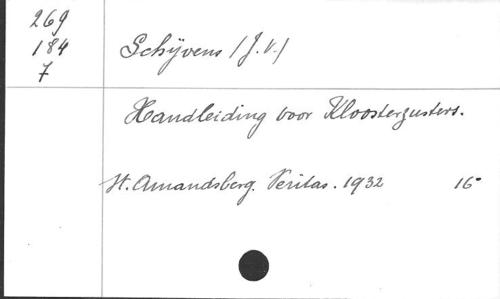 269
184
7
Schÿvens (J.V.)
Handleiding voor Kloosterzusters.
St. Amandsberg. Veritas. 1932 16°